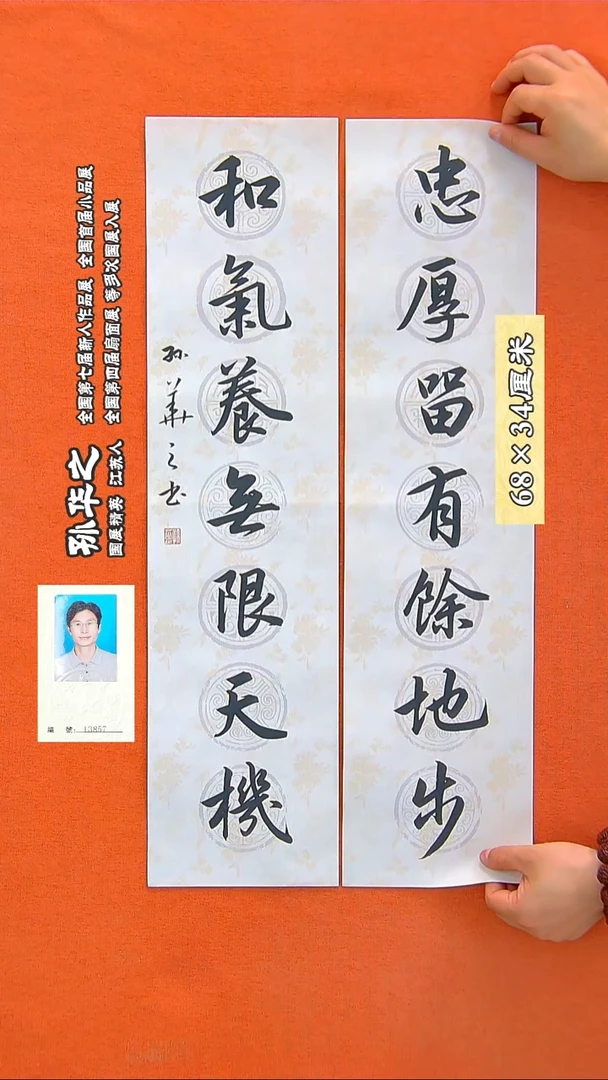 忠厚留有餘地步
和氣養無限天機
孙華之书
68×34厘米
孙华之
国展精英 江苏人
全国第七届新人作品展 全国首届小品展
全国第四届扇面展 等多次国展入展
編 號: 13857